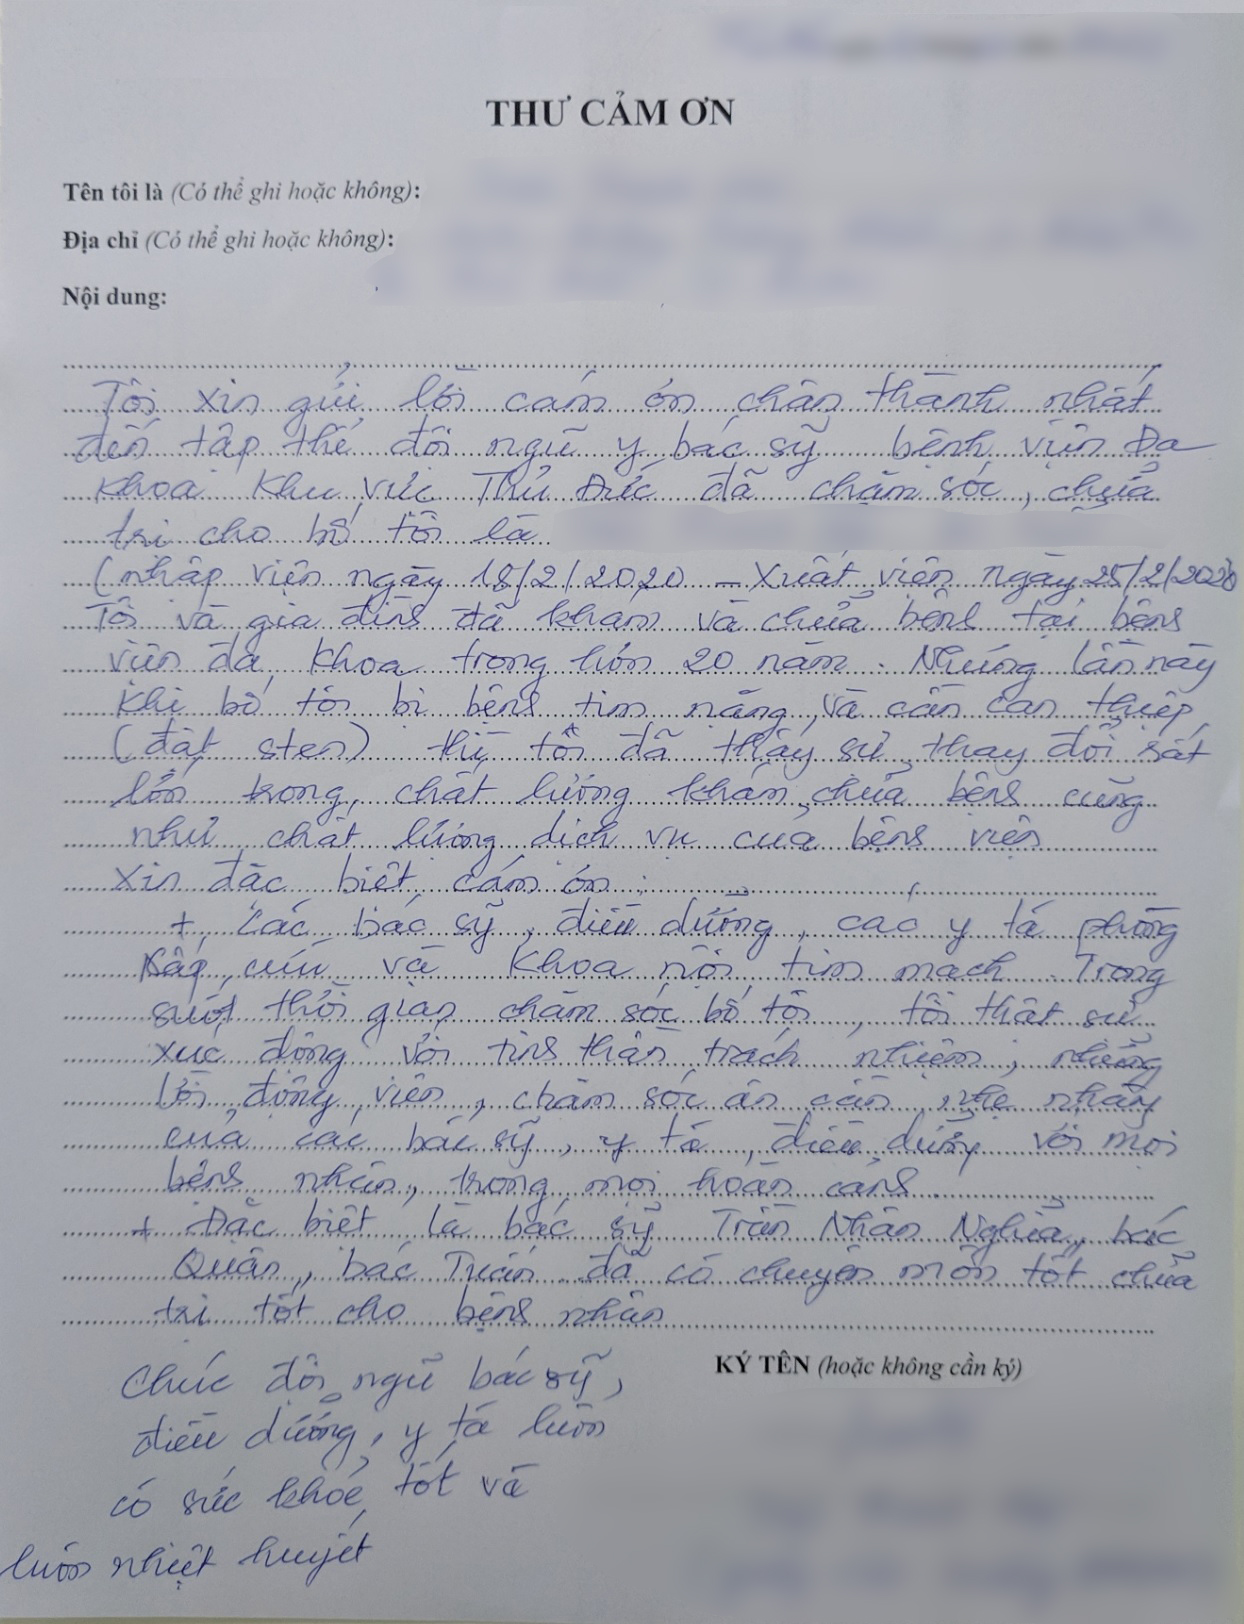 THƯ CẢM ƠN
Tên tôi là (Có thể ghi hoặc không):
Địa chỉ (Có thể ghi hoặc không):
Nội dung:
Tôi xin gửi lời cám ơn chân thành nhất
đến tập thể đội ngũ y bác sỹ bệnh viện Đa
Khoa Khu vực Thủ Đức đã chăm sóc, chữa
trị cho bố tôi là
(nhập viện ngày 18/2/2020 - Xuất viện ngày 25/2/2020
Tôi và gia đình đã khám và chữa bệnh tại bệnh
viện đa khoa trong hơn 20 năm. Nhưng lần này
khi bố tôi bị bệnh tim nặng, và cần can thiệp
(đặt sten) thì tôi đã thấy sự thay đổi rất
lớn trong chất lượng khám, chữa bệnh cũng
như chất lượng dịch vụ của bệnh viện
Xin đặc biệt cám ơn:
+ Các bác sỹ, điều dưỡng, các y tá phòng
Cấp cứu và Khoa nội tim mạch. Trong
suốt thời gian chăm sóc bố tôi, tôi thật sự
xúc động với tinh thần trách nhiệm, những
lời động viên, chăm sóc ân cần, nhẹ nhàng
của các bác sỹ, y tá, điều dưỡng với mọi
bệnh nhân, trong mọi hoàn cảnh
+ Đặc biệt là bác sỹ Trần Nhân Nghĩa, bác
Quân, bác Tuấn đã có chuyên môn tốt chữa
trị tốt cho bệnh nhân
KÝ TÊN (hoặc không cần ký)
Chúc đội ngũ bác sỹ,
điều dưỡng, y tá luôn
có sức khoẻ tốt và
luôn nhiệt huyết